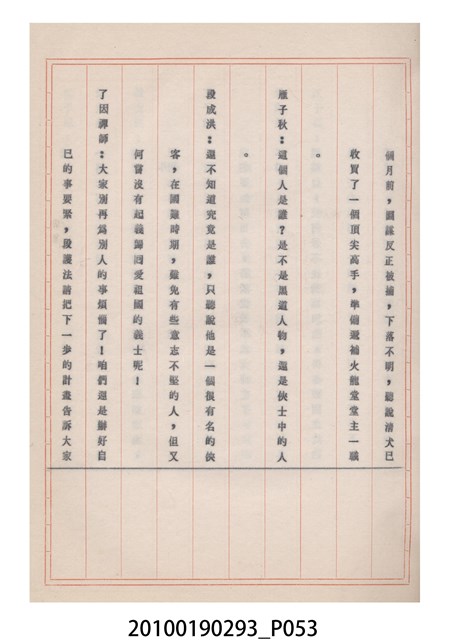 個月前，圖謀反正被捕，下落不明，聽說清犬已
收買了一個頂尖高手，準備遞補火龍堂堂主一職
。
雁子秋：這個人是誰？是不是黑道人物，還是俠士中的人
。
段成洪：還不知道究竟是誰，只聽說他是一個很有名的俠
客，在國難時期，難免有些意志不堅的人，但又
何嘗沒有起義歸因愛祖國的義士呢！
了因禪師：大家別再為別人的事煩惱了！咱們還是辦好自
已的事要緊，段護法請把下一步的計畫告訴大家
20100190293_P053